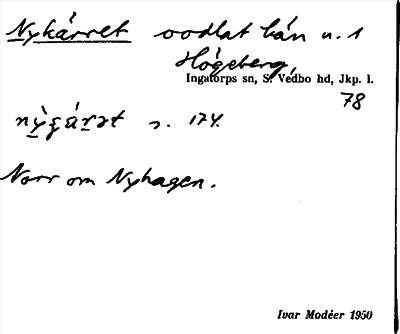 Nykärret oodlat kärr u. 1
Högeberg,
Ingatorps sn, S. Vedbo hd, Jkp. l.
78
s. 174.
Norr om Nyhagen.
Ivar Modéer 1950